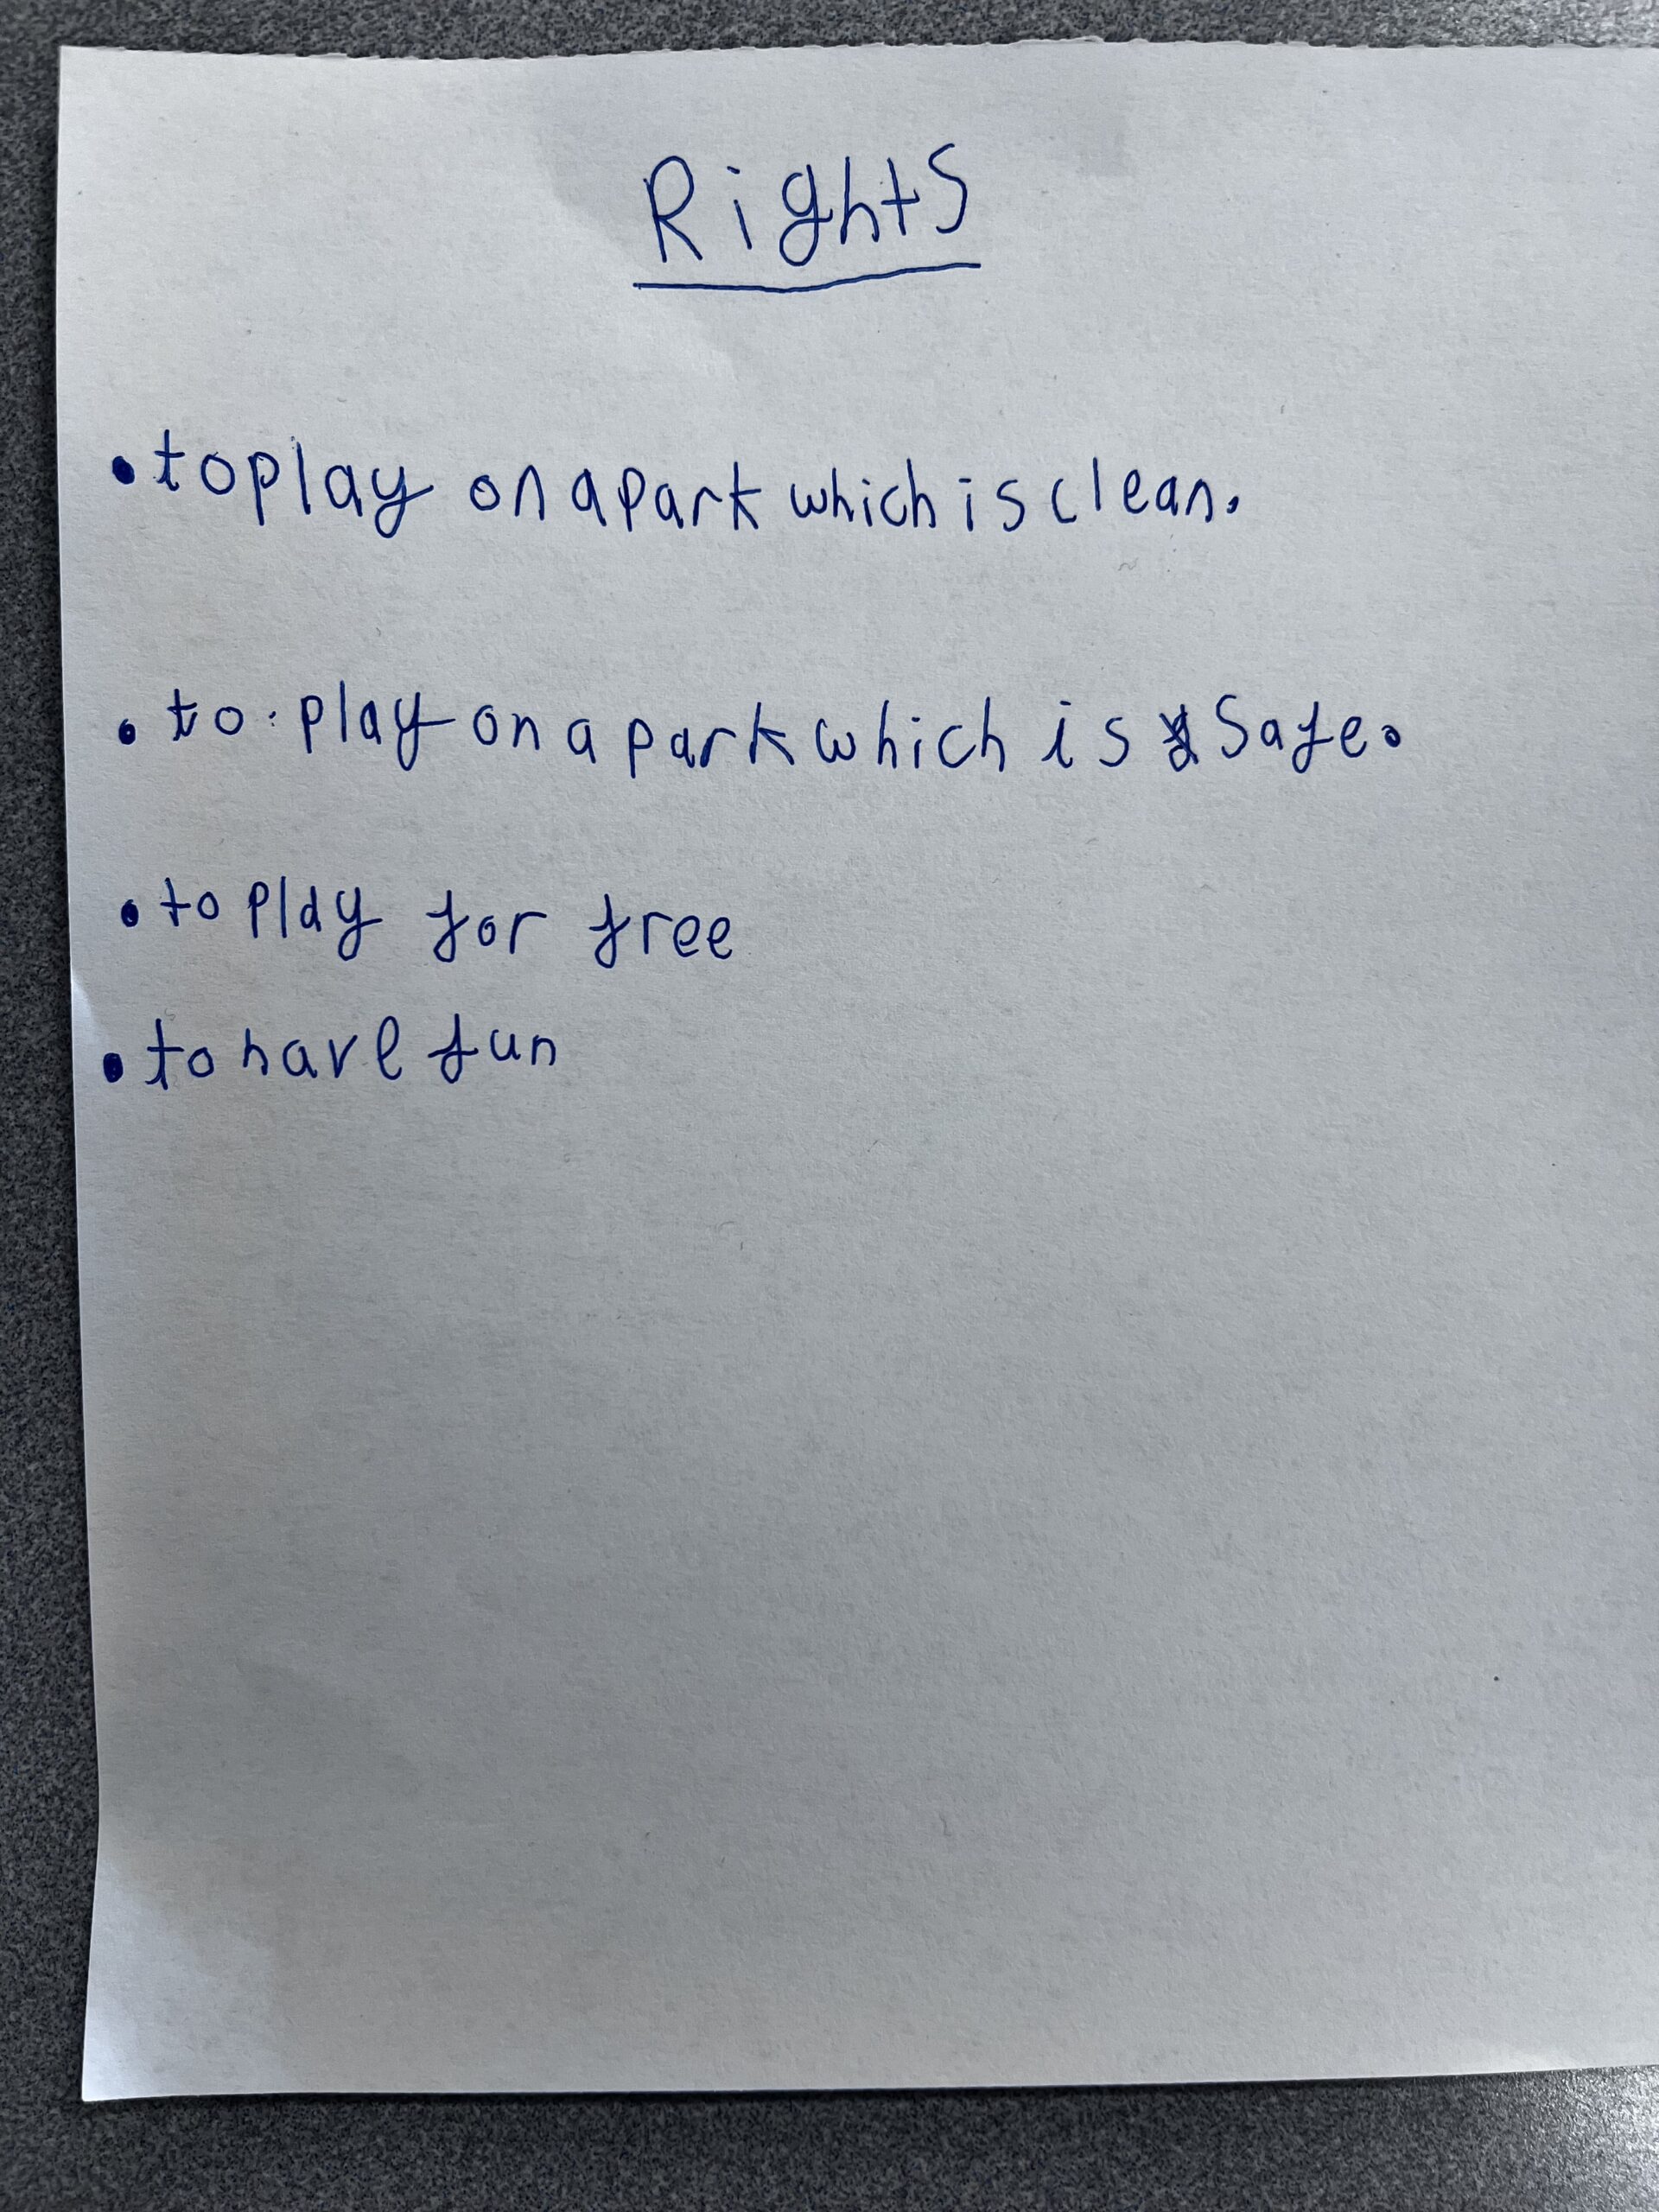 Rights
• to play on a park which is clean.
• to play on a park which is safe.
• to play for free
• to have fun